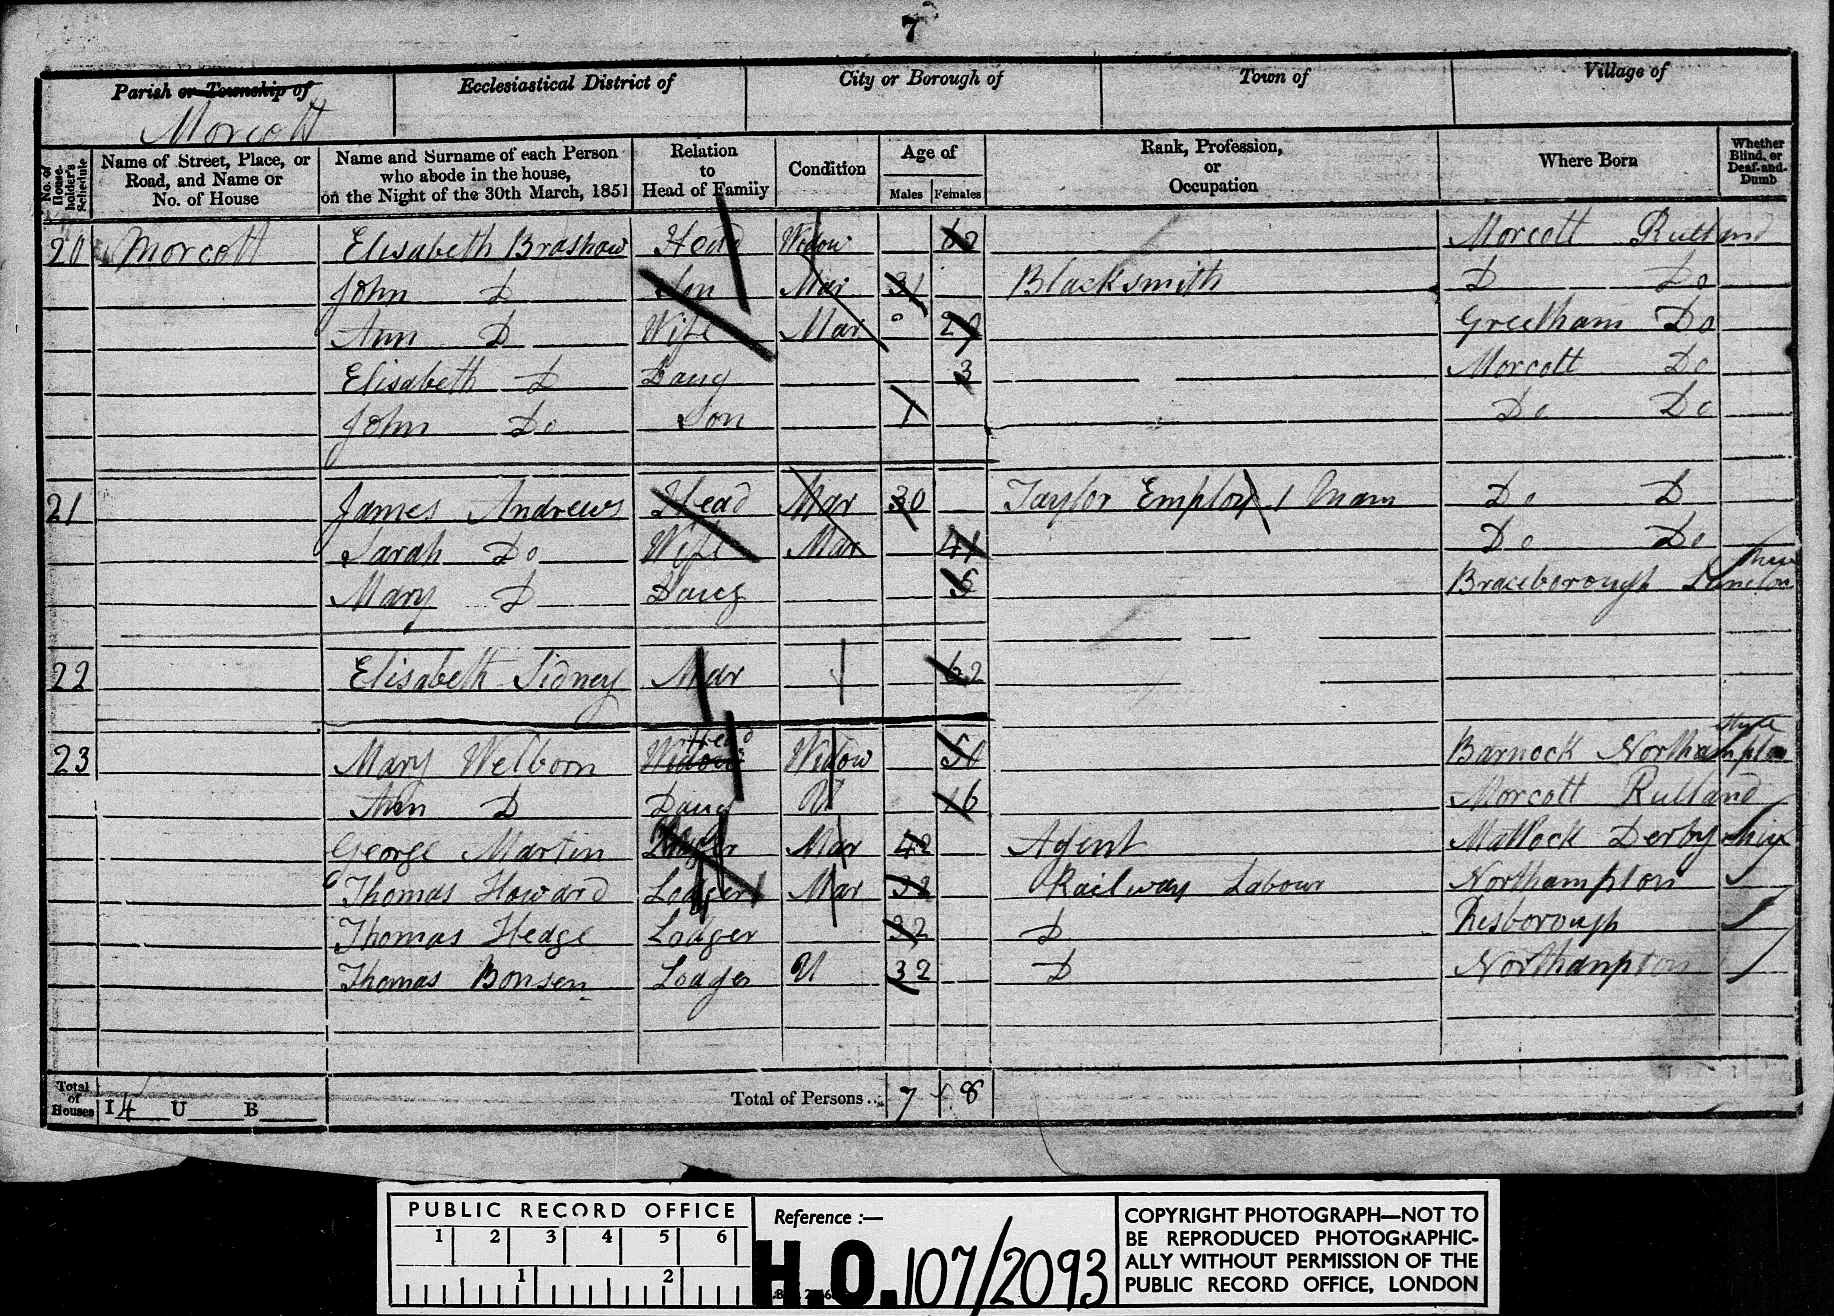 7
Parish or Township of Ecclesiastical District of City or Borough of Town of Village of
Morcott
No. of House-holder's Schedule Name of Street, Place, or Road, and Name or No. of House Name and Surname of each Person who abode in the house, on the Night of the 30th March, 1851 Relation to Head of Family Condition Age of Males Females Rank, Profession, or Occupation Where Born Whether Blind, or Deaf-and-Dumb
20 Morcott Elisabeth Brashaw Head Widow 62 Morcott Rutland
John D Son Mar 31 Blacksmith D Do
Ann D Wife Mar 29 Greetham Do
Elisabeth D Daug 3 Morcott Do
John Do Son 1 Do Do
21 James Andrews Head Mar 30 Taylor Employ 1 Mam Do D
Sarah Do Wife Mar 41 Do Do
Mary D Daug 5 Braceborough
22 Elisabeth Sidney Mar 62
23 Mary Welborn Widow Head Widow Barnock Northampton
Ann D Daug U 16 Morcott Rutland
George Martin Lodger Mar 42 Agent Matlock Derby shire
Thomas Howard Lodger Mar 32 Railway Labour Northampton
Thomas Hedge Lodger 32 D Risborough
Thomas Bonsen Lodger U 32 D Northampton
Total of Houses I 4 U B Total of Persons... 7 8
PUBLIC RECORD OFFICE
1 2 3 4 5 6
1 2
Reference :—
H.O. 107/2093
COPYRIGHT PHOTOGRAPH—NOT TO
BE REPRODUCED PHOTOGRAPHIC-
ALLY WITHOUT PERMISSION OF THE
PUBLIC RECORD OFFICE, LONDON